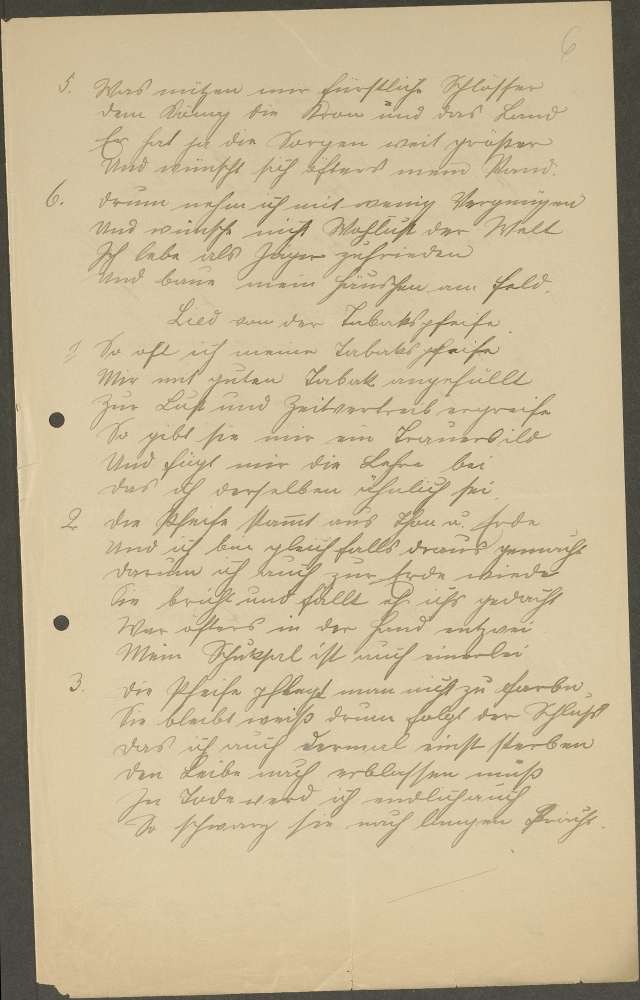 6
5. Was nützen mir fürstliche Schlösser
dem König die Kron und das Land
Er hat ja die Sorgen weit größer
Und wünscht sich öfters mein Stand.
6. drum nehm ich mit wenig Vergnügen
Und wünsche nicht Wohllust der Welt
Ich lebe als Jäger zufrieden
Und baue mein Häuschen am Feld.
Lied von der Tabakspfeife.
1 So oft ich meine Tabakspfeife
Mir mit guten Tabak angefüllt
Zur Lust und Zeitvertreib ergreife
So gibt sie mir ein Trauerbild
Und fügt mir die Lehre bei
das ich derselben ähnlich sei.
2 die Pfeife stam̄t aus Thon u. Erde
Und ich bin gleichfalls draus gemacht
darum ich auch zur Erde wiede
Sie bricht und fällt eh ichs gedacht
War öfters in der Hand entzwei
Mein Schiksal ist auch einerlei
3. die Pfeife pflegt man nicht zu farbe
Sie bleibt weiß drum folgt der Schluß
das ich auch dermal einst sterben
den Leibe nach erblassen muß
In Tode werd ich endlich auch
So schwarz sie nach langen